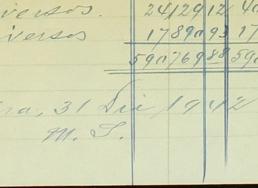 versos. 24129 12
versos 17890 93 17
590769 88 590
31 Dic 1942
M. S.